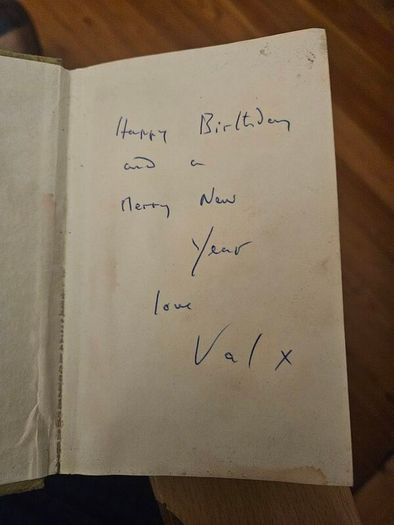 Happy Birthday
and a
Merry New
Year
love
Val x